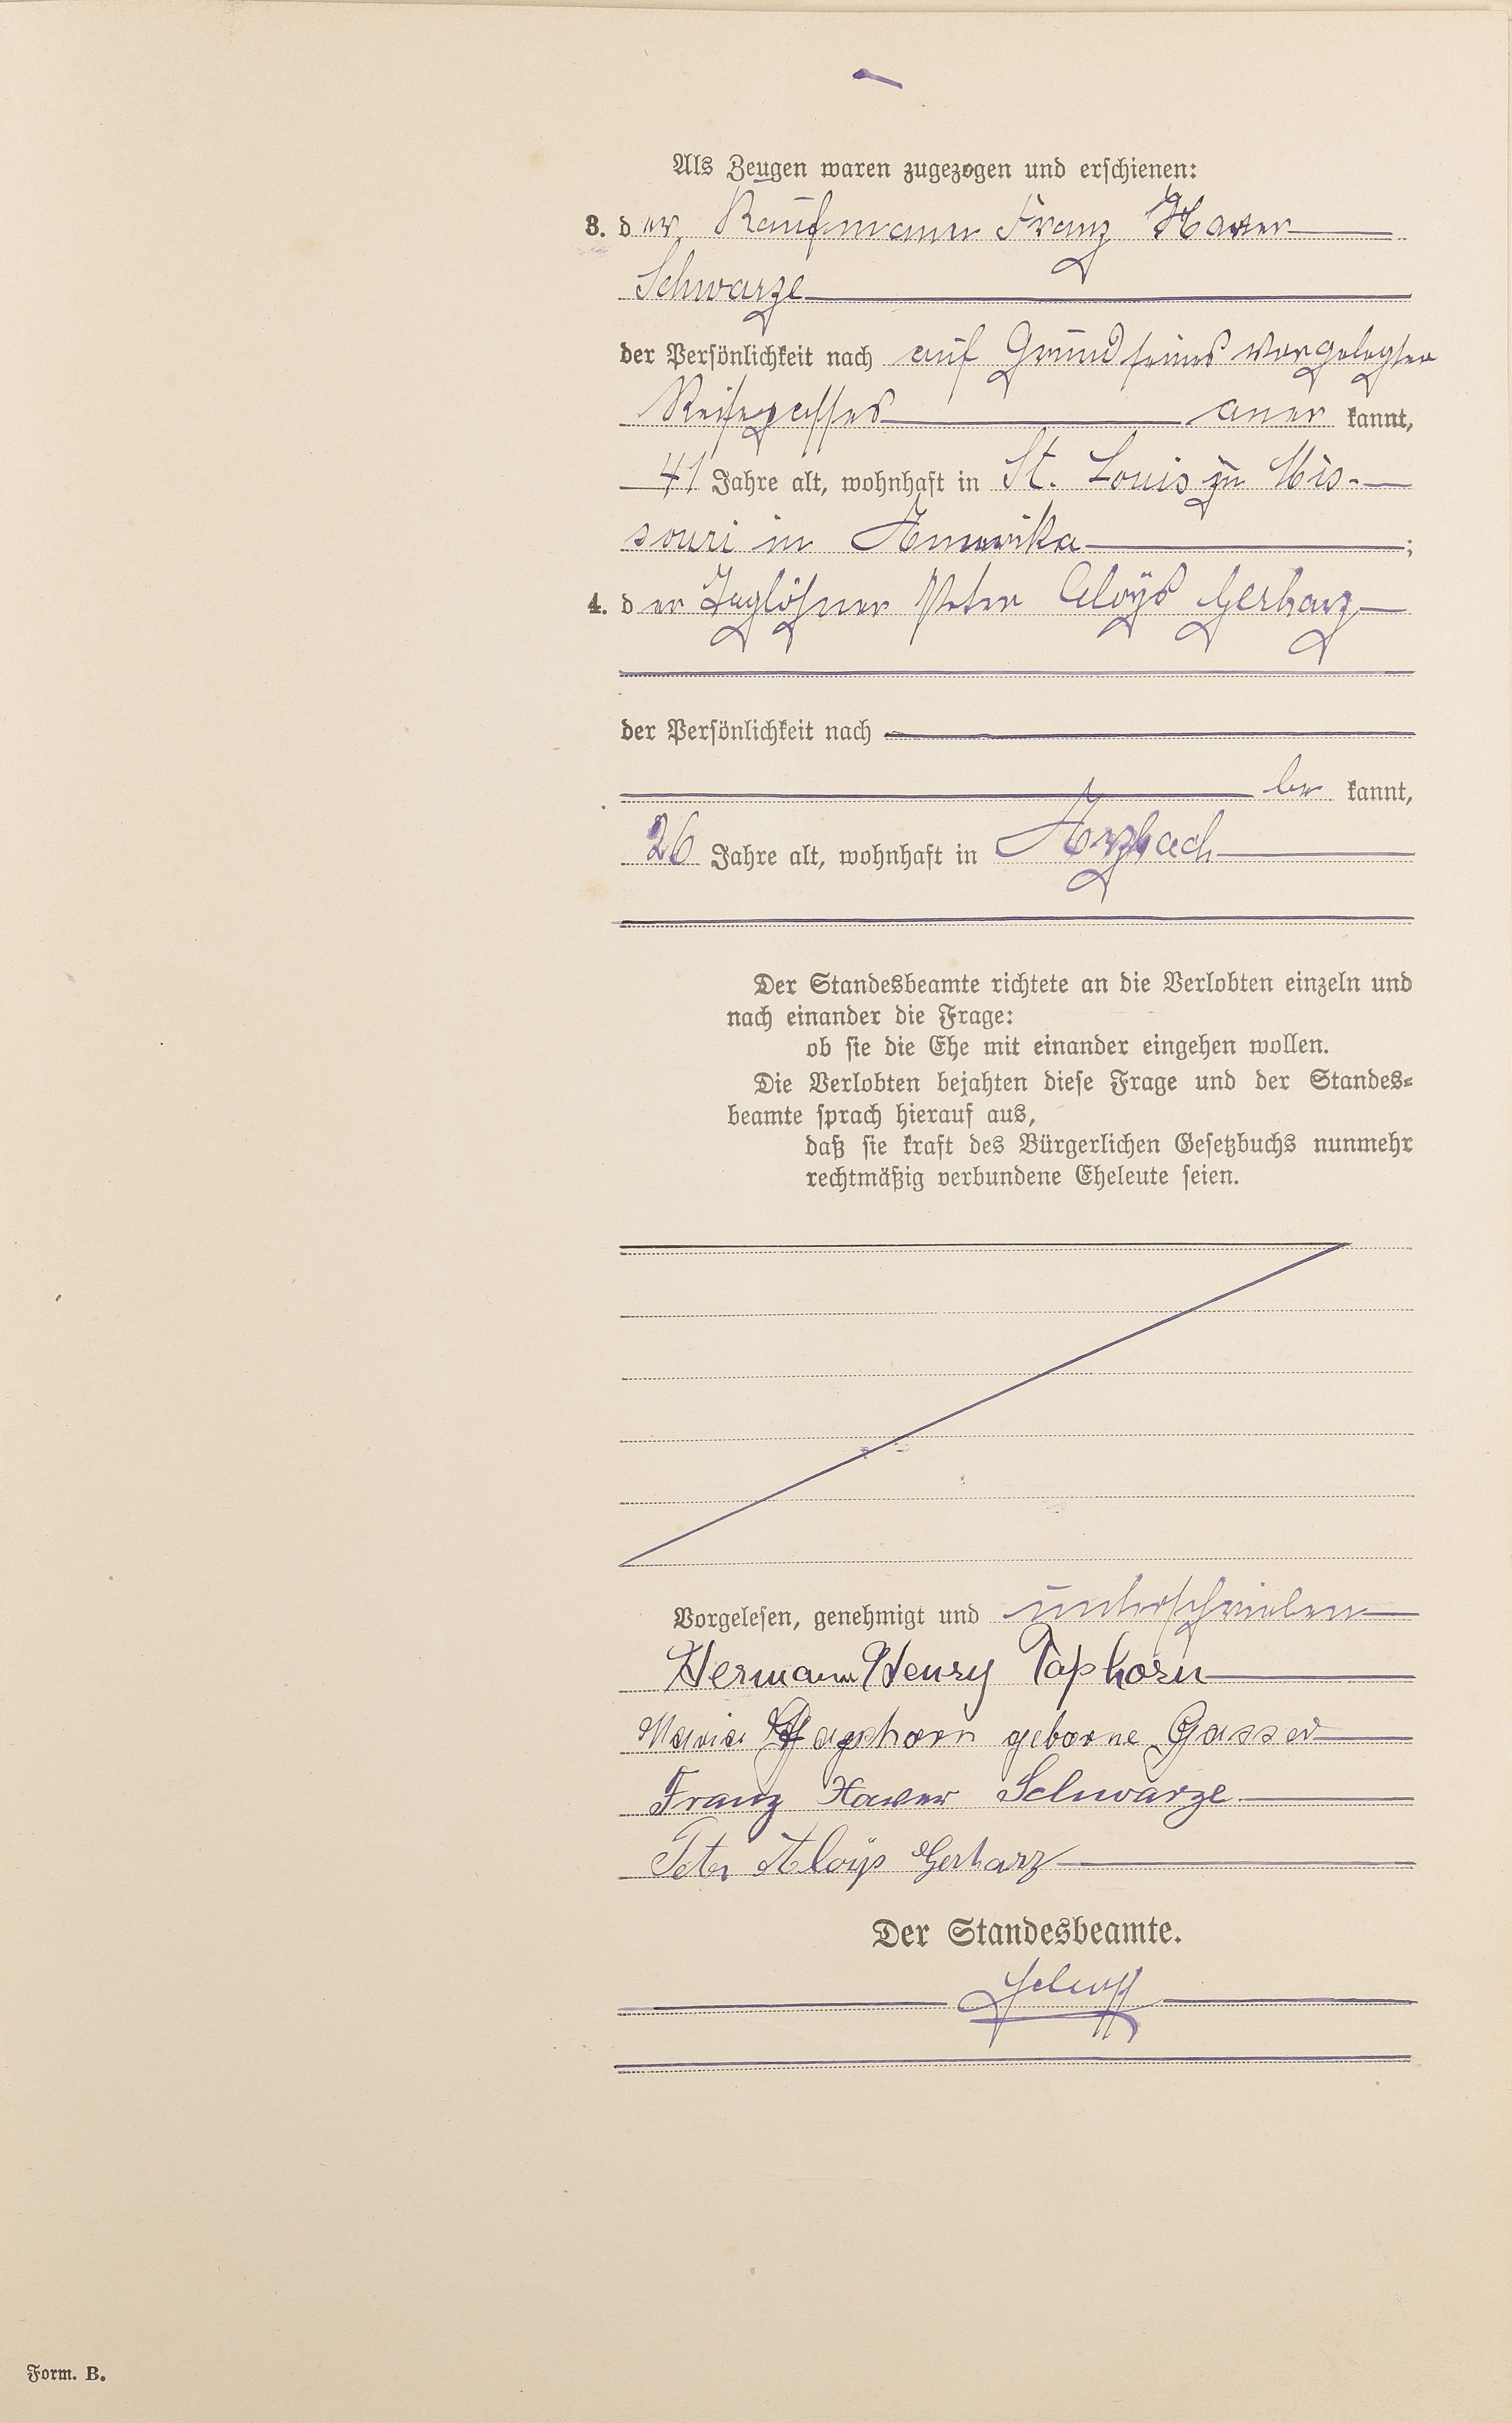 Als Zeugen waren zugezogen und erschienen:
3. der Kaufmann Franz Xaver
Schwarze
der Persönlichkeit nach auf Grund seines vorgelegten
Reisepasses aner kannt,
41 Jahre alt, wohnhaft in St. Louis in Mis-
souri in Amerika;
4. der Taglöhner Peter Aloÿs Gerharz
der Persönlichkeit nach
be kannt,
26 Jahre alt, wohnhaft in Arzbach
Der Standesbeamte richtete an die Verlobten einzeln und
nach einander die Frage:
ob sie die Ehe mit einander eingehen wollen.
Die Verlobten bejahten diese Frage und der Standes-
beamte sprach hierauf aus,
daß sie kraft des Bürgerlichen Gesetzbuchs nunmehr
rechtmäßig verbundene Eheleute seien.
Vorgelesen, genehmigt und unterschrieben
Hermann Henry Taphorn
Maria Taphorn geborne Gasser
Franz Xaver Schwarze
Peter Aloÿs Gerharz
Der Standesbeamte.
Form. B.